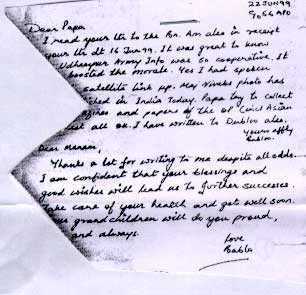 22 JUN 99
56 APO
Dear Papa,
I read your ltr to the Bn. Am also in receipt
your ltr dt 16 Jun 99. It was great to know
Udhampur Army Info was so cooperative. It
boosted the morale. Yes I had spoken
satellite link up. May
in India Today. Papa try to collect
and papers of the OP
all ok. I have written to Dubloo also.
Yours affly
Babloo.
Dear Mamam,
Thanks a lot for writing to me despite all odds.
I am confident that your blessings and
good wishes will lead us to further successes.
Take care of your health and get well soon.
grandchildren will do you proud,
and always.
Love
Babloo